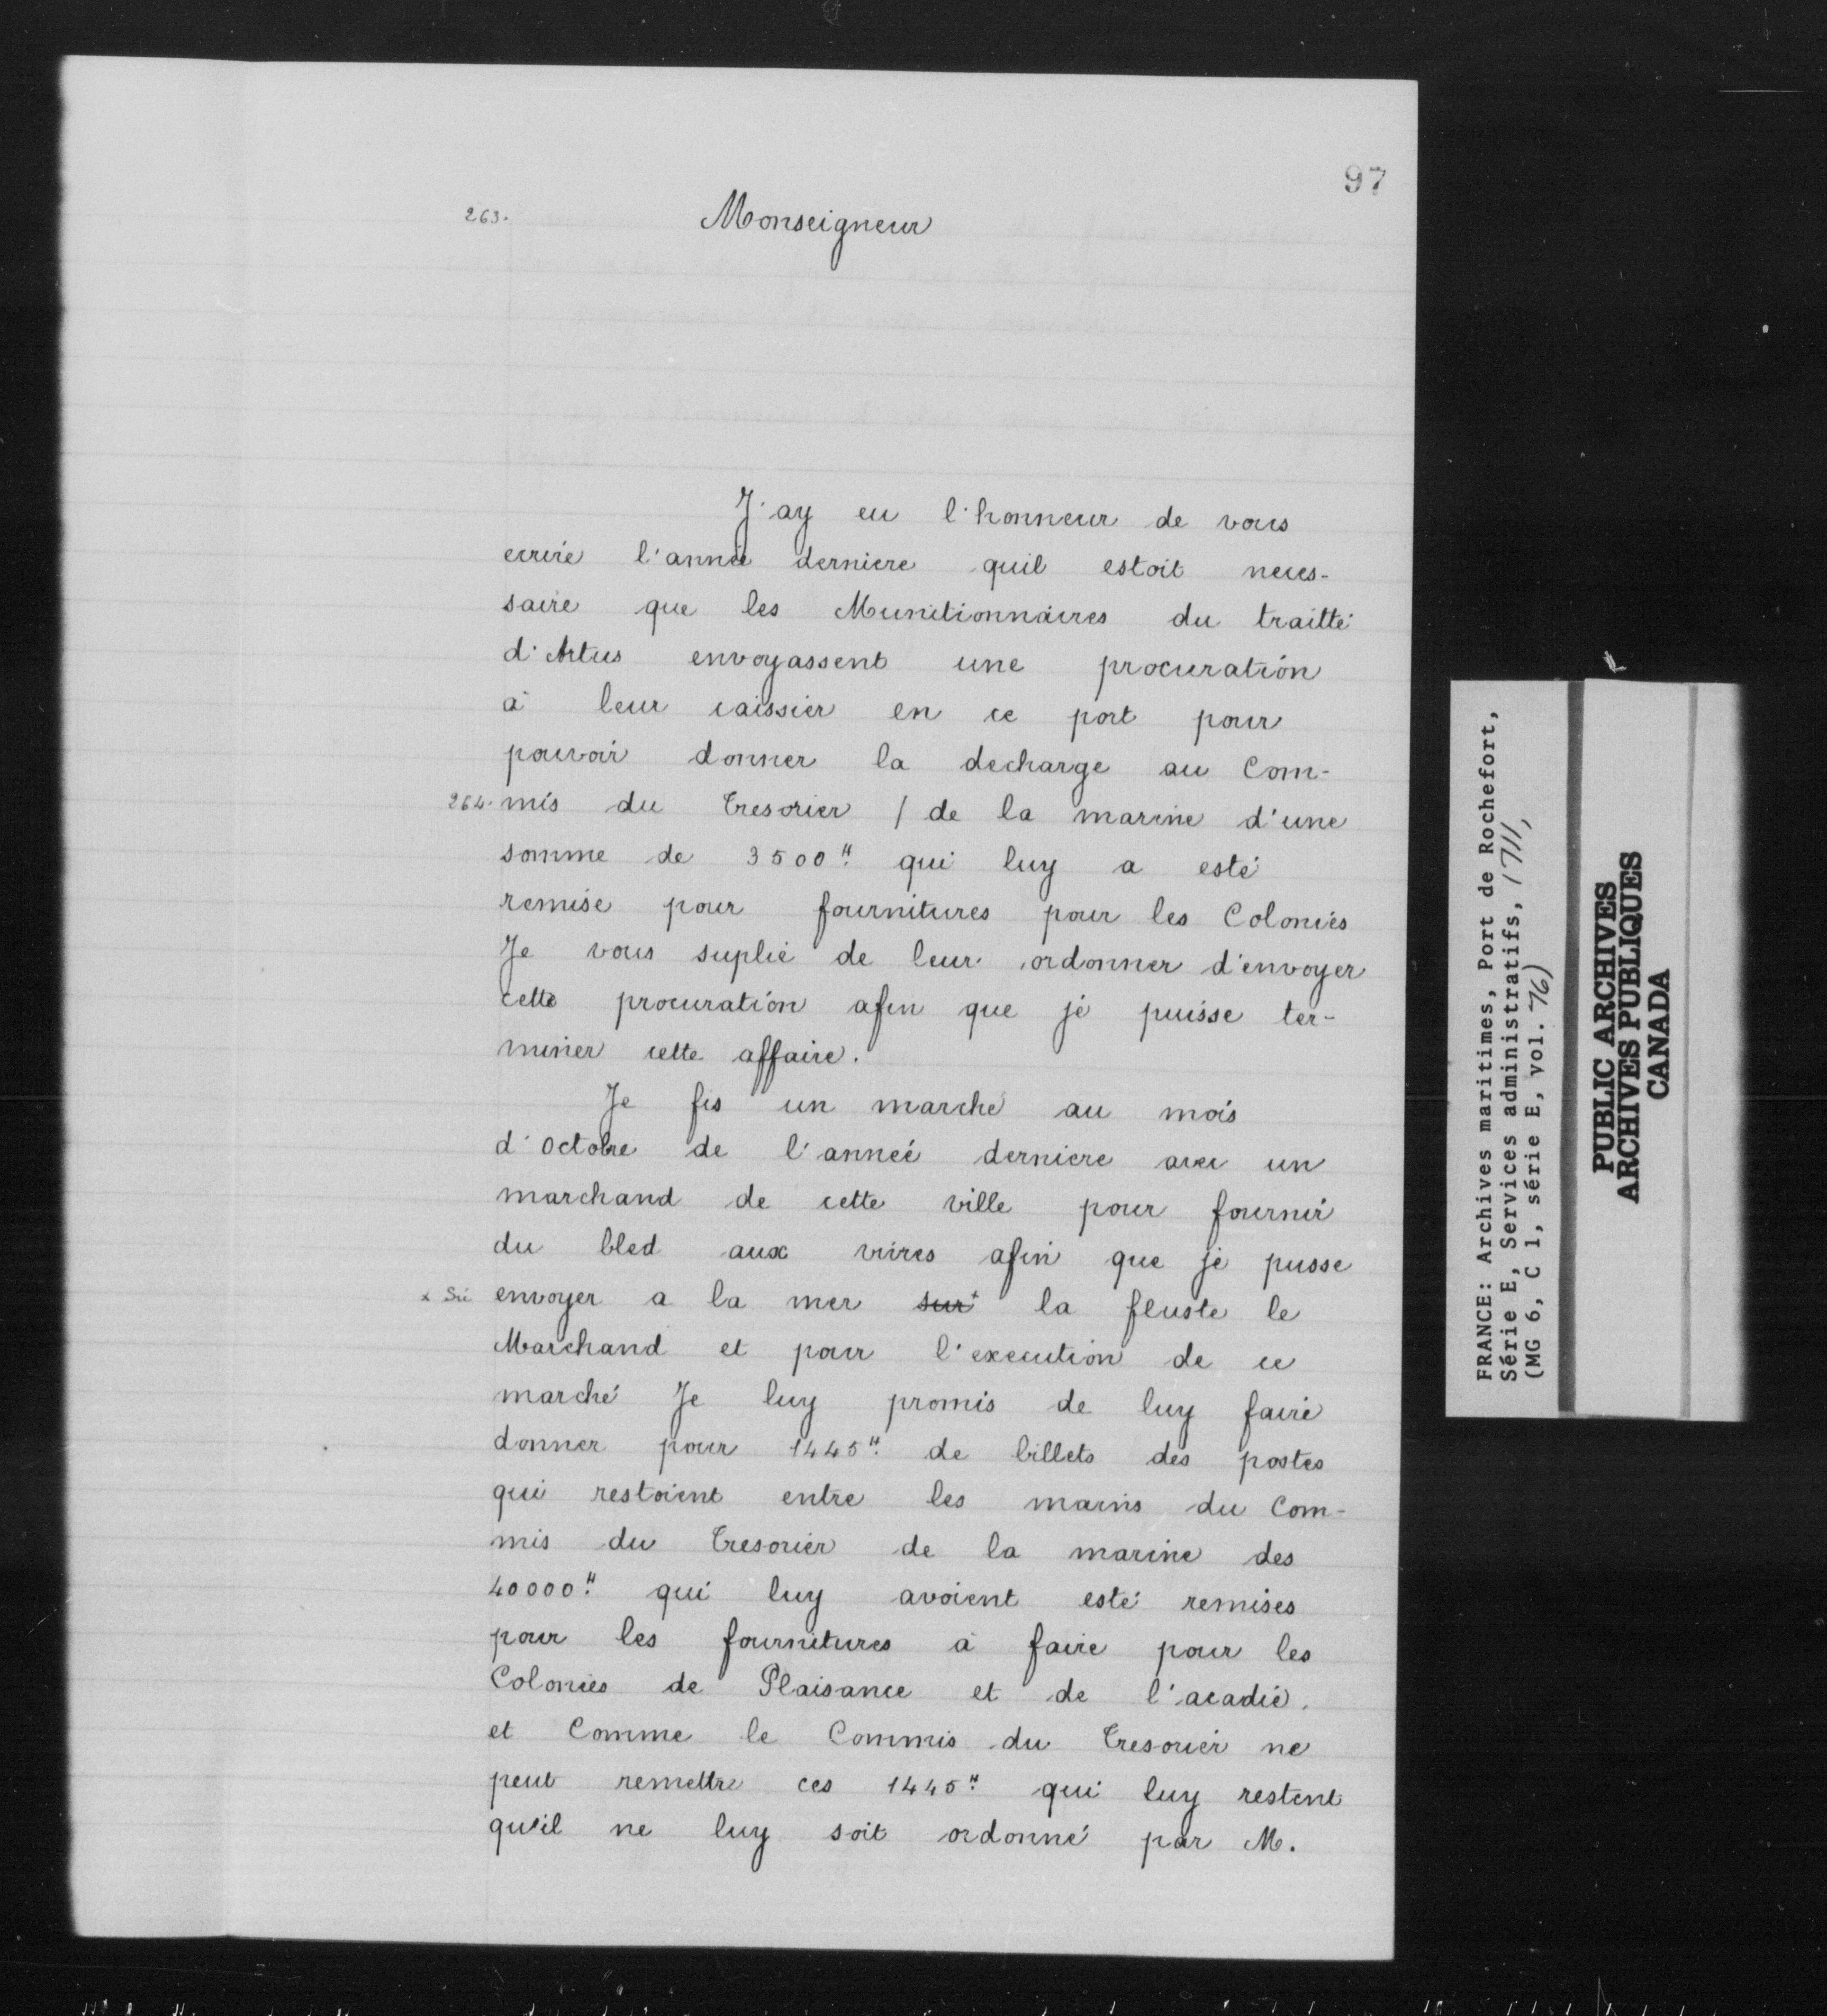 97
263. Monseigneur
J'ay eu l'honneur de vous
ecrire l'année derniere quil estoit neces-
saire que les Munitionnaires du traitté
d'Artus envoyassent une procuration
à leur caissier en ce port pour
pouvoir donner la decharge au Com-
264. mis du Tresorier / de la marine d'une
somme de 3500" qui luy a esté
remise pour fournitures pour les Colonies
Je vous suplie de leur ordonner d'envoyer
cette procuration afin que je puisse ter-
miner cette affaire.
Je fis un marché au mois
d'Octobre de l'année derniere avec un
marchand de cette ville pour fournir
du bled aux vivres afin que je pusse
x Sic envoyer a la mer sur x la fluste le
Marchand et pour l'execution de ce
marché Je luy promis de luy faire
donner pour 1445" de billets des postes
qui restoient entre les mains du Com-
mis du Tresorier de la marine des
40000" qui luy avoient esté remises
pour les fournitures à faire pour les
Colonies de Plaisance et de l'acadie.
et Comme le Commis du Tresorier ne
peut remettre ces 1445" qui luy restent
qu'il ne luy soit ordonné par M.
FRANCE: Archives maritimes, Port de Rochefort,
Série E, Services administratifs, 1711,
(MG 6, C 1, série E, vol. 76)
PUBLIC ARCHIVES
ARCHIVES PUBLIQUES
CANADA